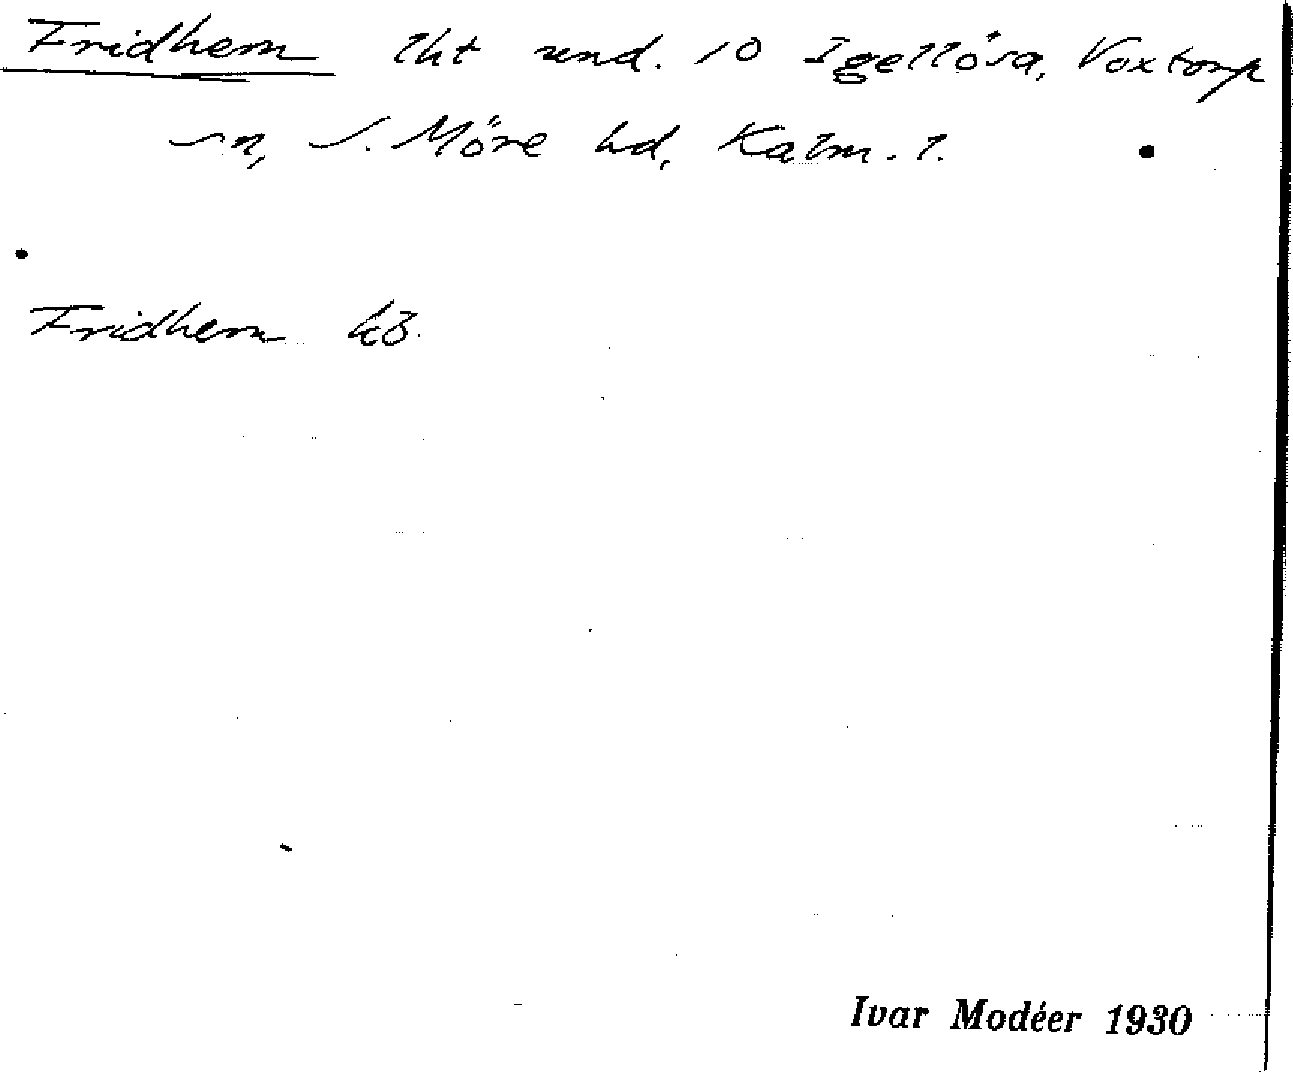 Fridhem lht und. 10 Igellösa, Voxtorp
sn, S. Möre hd, Kalm. l.
Fridhem kB.
Ivar Modéer 1930